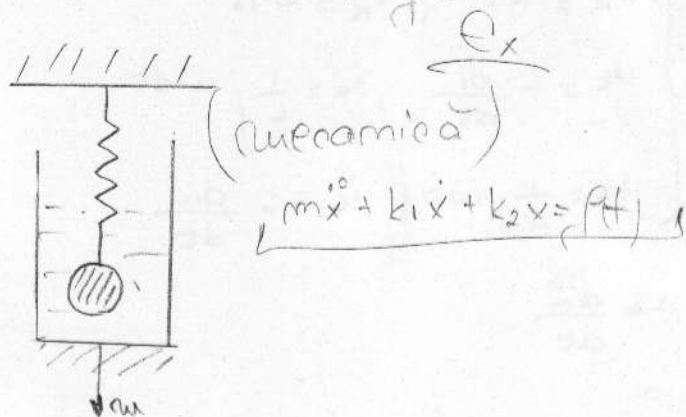 Ex
(mecanică)
mẍ + k₁ẋ + k₂x = f(t)
m